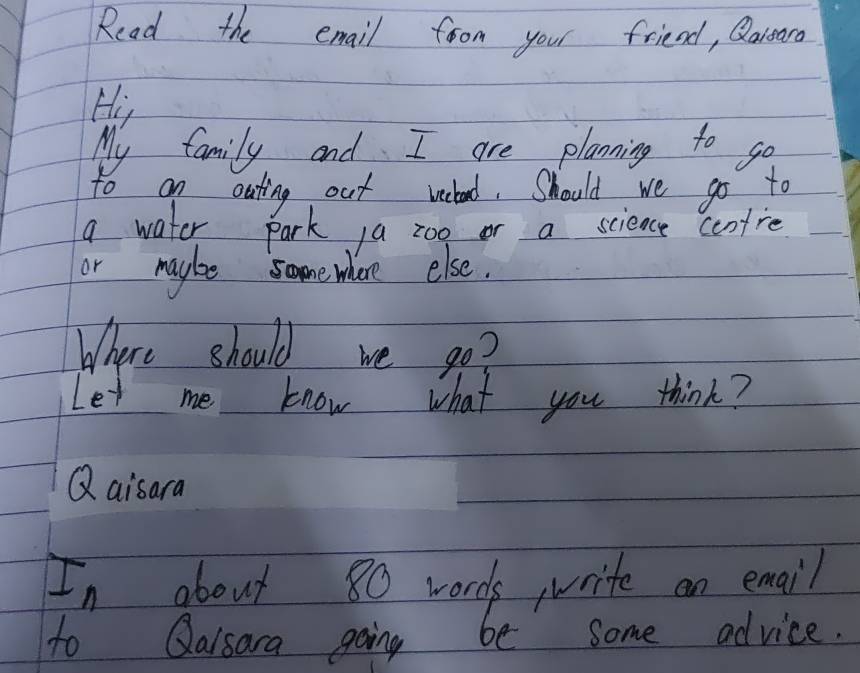 Read the email from your friend, Qaisara
Hi,
My family and I are planning to go
to an outing out weekend. Should we go to
a water park, a zoo or a science centre
or maybe somewhere else.
Where should we go?
Let me know what you think?
Qaisara
In about 80 words, write an email
to Qaisara going be some advice.